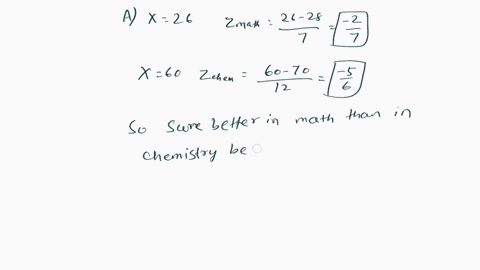 A) X = 26 Zmath = 26-28/7 = -2/7
X = 60 Zchem = 60-70/12 = -5/6
So Sure better in math than in
chemistry be